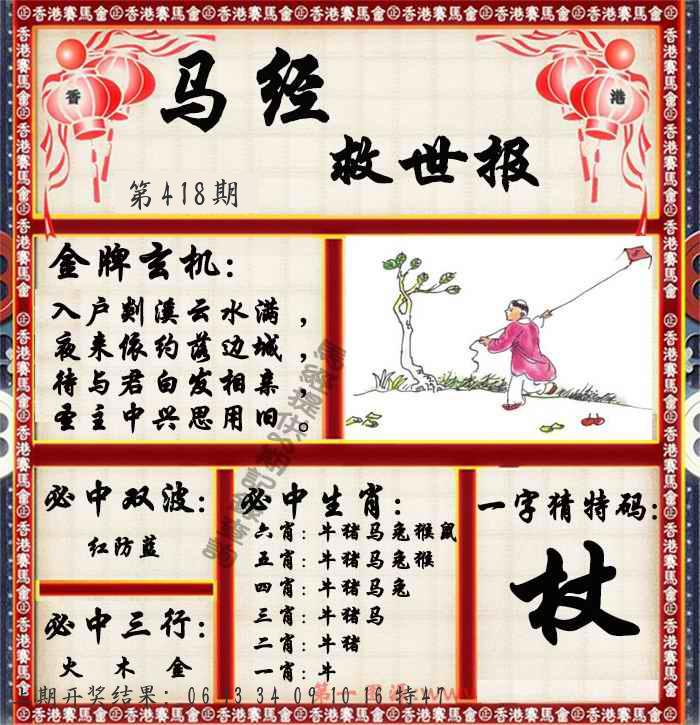 香港賽馬會
香
港
马经
救世报
第418期
金牌玄机:
入户剡溪云水满，
夜来依约落边城，
待与君向发相亲，
圣主中兴思用旧。
必中双波:
红防蓝
必中三行:
火 木 金
必中生肖:
六肖: 牛猪马兔猴鼠
五肖: 牛猪马兔猴
四肖: 牛猪马兔
三肖: 牛猪马
二肖: 牛猪
一肖: 牛
一字猜特码:
杖
期开奖结果: 06 13 34 09 10 16 特47